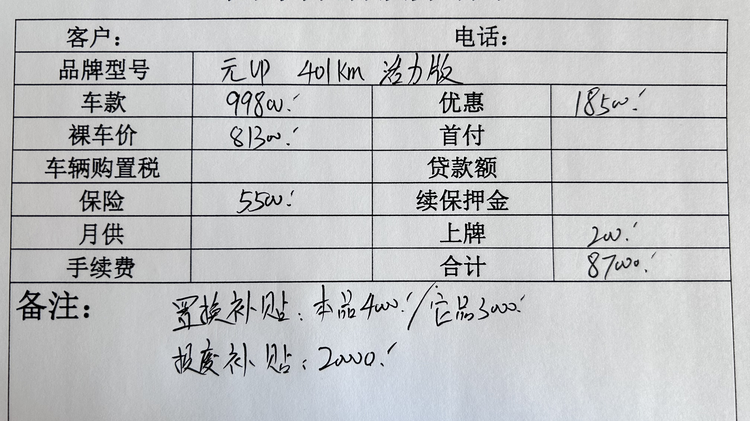 客户： 电话：
品牌型号 元UP 401Km 活力版
车款 99800 优惠 18500
裸车价 81300 首付
车辆购置税 贷款额
保险 5500 续保押金
月供 上牌 200
手续费 合计 87000
备注： 置换补贴：本品4000/它品3000
报废补贴：20000